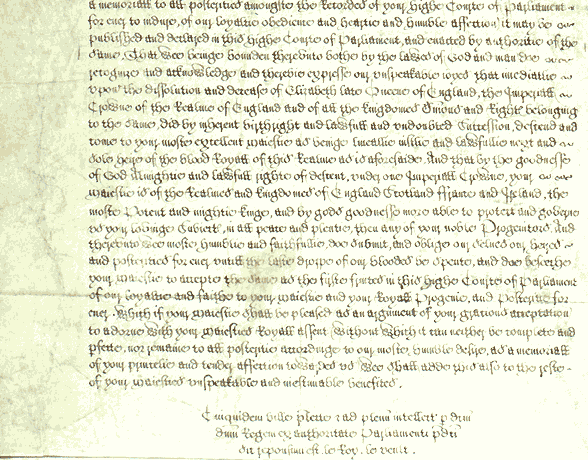 a memoriall to all posterities amongste the Recordes of your highe Courte of Parliament
for ever to indure, of our loyaltie obedience and heartie and humble affection it may be
published and declared in this highe Courte of Parliament, and enacted by authoritie of the
same, That wee beinge bounden thereunto bothe by the lawes of God and man doe
recognize and acknowledge and thereby expresse our unspeakable ioyes that imediatlie
upon the dissolution and decease of Elizabeth late Queene of England, the Imperiall
Crowne of the Realme of England and of all the kingdomes Dominions and Rights belonging
to the same, did by inherent birthright and lawfull and undoubted Succession, descend and
come to your moste excellent maiestie as beinge lineallie iustlie and lawfullie next and
sole heire of the blood Royall of this Realme as is aforesaide. And that by the goodnesse
of God Almightie and lawfull righte of descent, under one Imperiall Crowne, your
Maiestie is of the Realmes and kingdomes of England Scotland ffrance and Ireland, the
moste Potent and mightie kinge, and by gods goodnesse more able to protect and governe
us your lovinge Subiects, in all peace and plentie, then any of your noble Progenitors. And
thereunto wee moste humblie and faithfullie, doe submit, and oblige our selves our heires
and posterities for ever untill the laste droppe of our bloodes be spente, and doe beseche
your maiestie to accepte the same as the firste fruites in this highe Courte of Parliament
of our loyaltie and faithe to your maiestie and your Royall Progenie, and Posteritie for
ever. Which if your maiestie shall be pleased as an argument of your gratious acceptation
to adorne with your maiesties Royall assent without which it can neither be complete and
pfecte, nor remaine to all posteritie accordinge to our moste humble desire, as a memoriall
of your princelie and tender affection towardes us wee shall adde this also to the reste
of your maiesties unspeakable and inestimable benefites.
Cuiquidem bille plecte & ad plenu intellect p dcm
dnm Regem ex authoritate Parliamenti pdci
sic responsum est. le Roy. le veult.